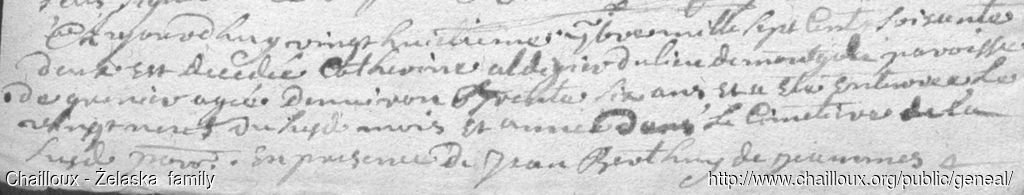 Ce jourdhuy vingt huitieme 7bre mille sept cents soixante
deux est decedée Catherine aldegier du lieu de paroisse
de grenier agée denviron trente six ans et a eté enterrée le
vingt neuf du susd mois et année dans le Cimetiere de la
susde parr. En presence de Jean Berthuy de
Chailloux - Żelaska family
http://www.chailloux.org/public/geneal/